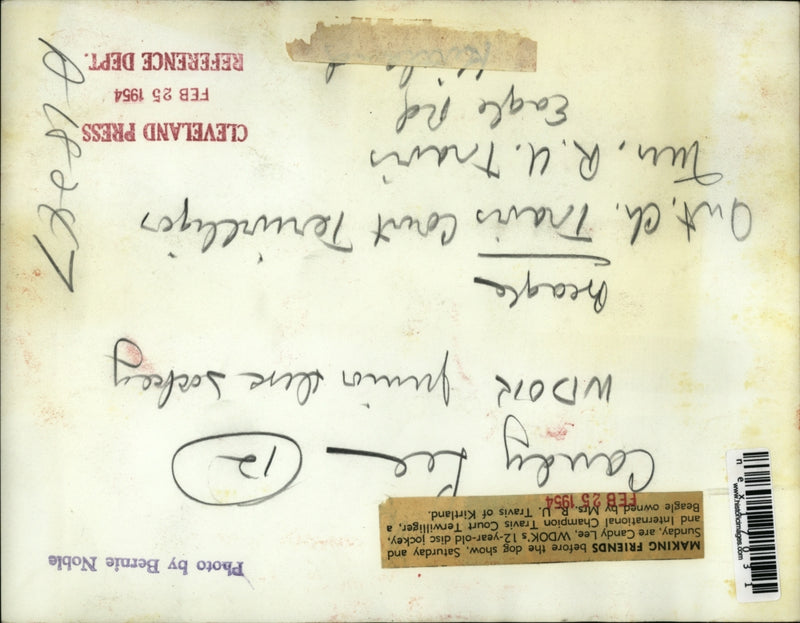 Photo by Bernie Noble
MAKING FRIENDS before the dog show, Saturday and
Sunday, are Candy Lee, WDOK's 12-year-old disc jockey,
and International Champion Travis Court Terwilliger, a
Beagle owned by Mrs. R. U. Travis of Kirtland.
FEB 25 1954
Candy Lee — 12
WDOK junior disc jockey
Beagle
Int. Ch. Travis Court Terwilliger
Mrs. R. U. Travis
Eagle Rd
Kirtland
CLEVELAND PRESS
FEB 25 1954
REFERENCE DEPT.
www.historicimages.com
nex17031